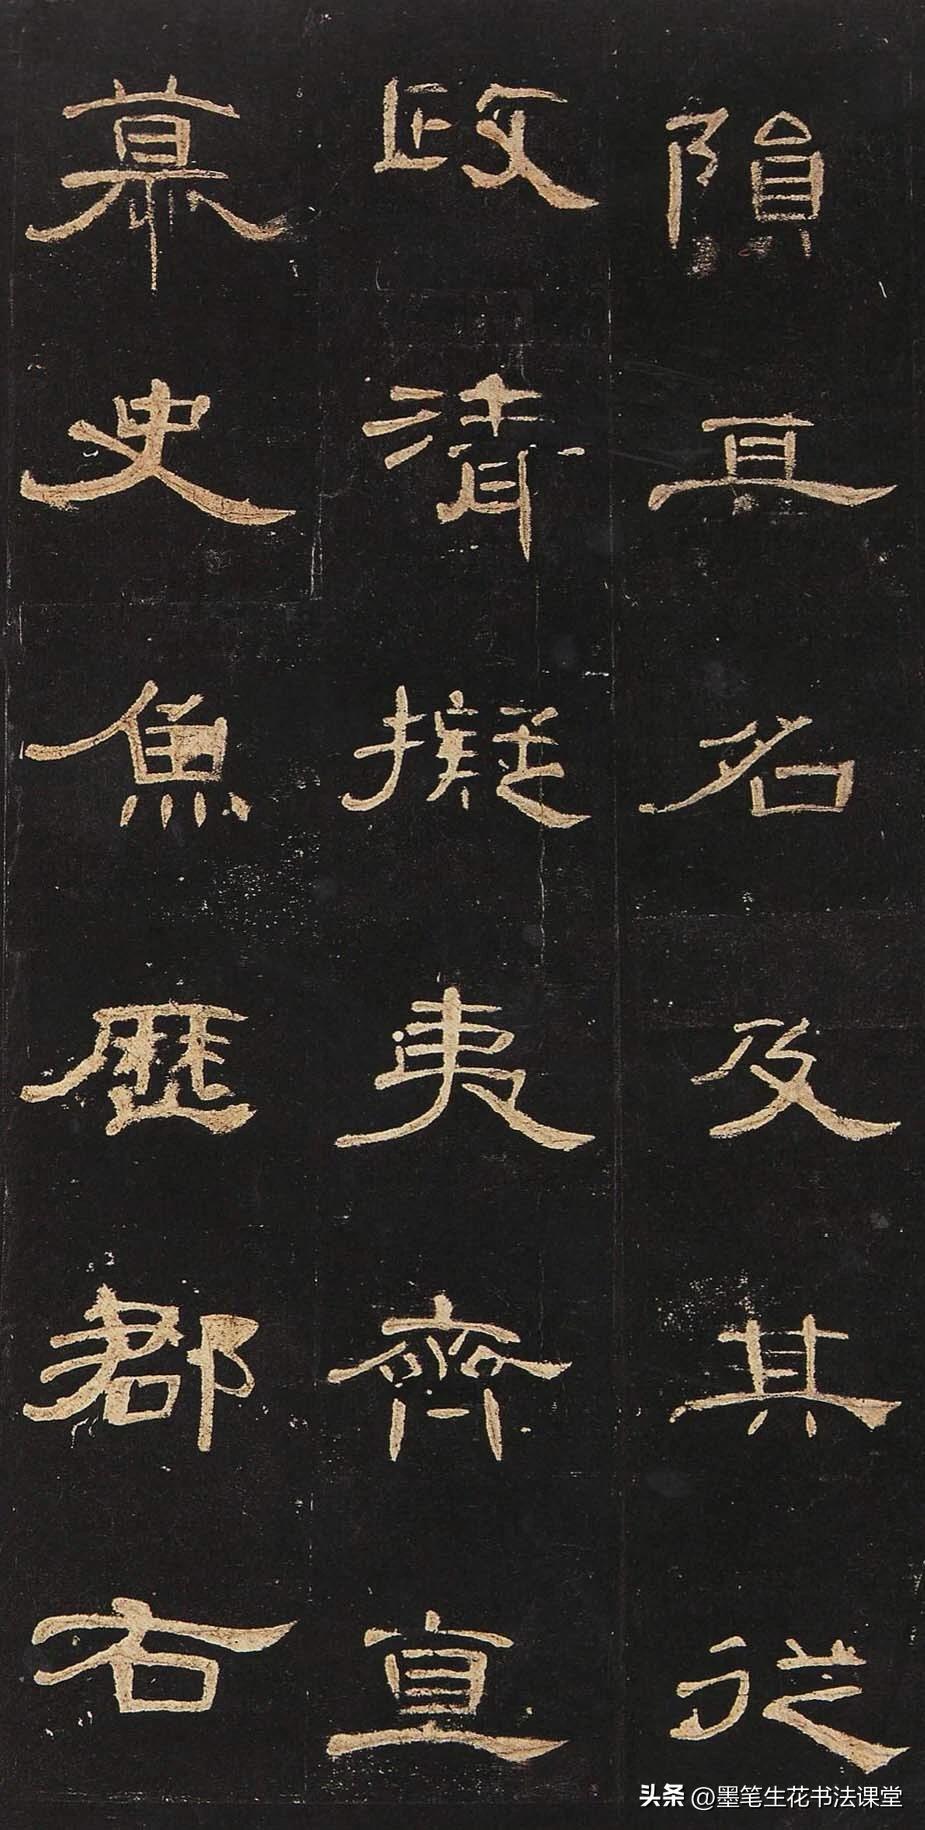 隕亘名及其从
政清擬夷齊直
慕史魚歷郡右
头条 @墨笔生花书法课堂